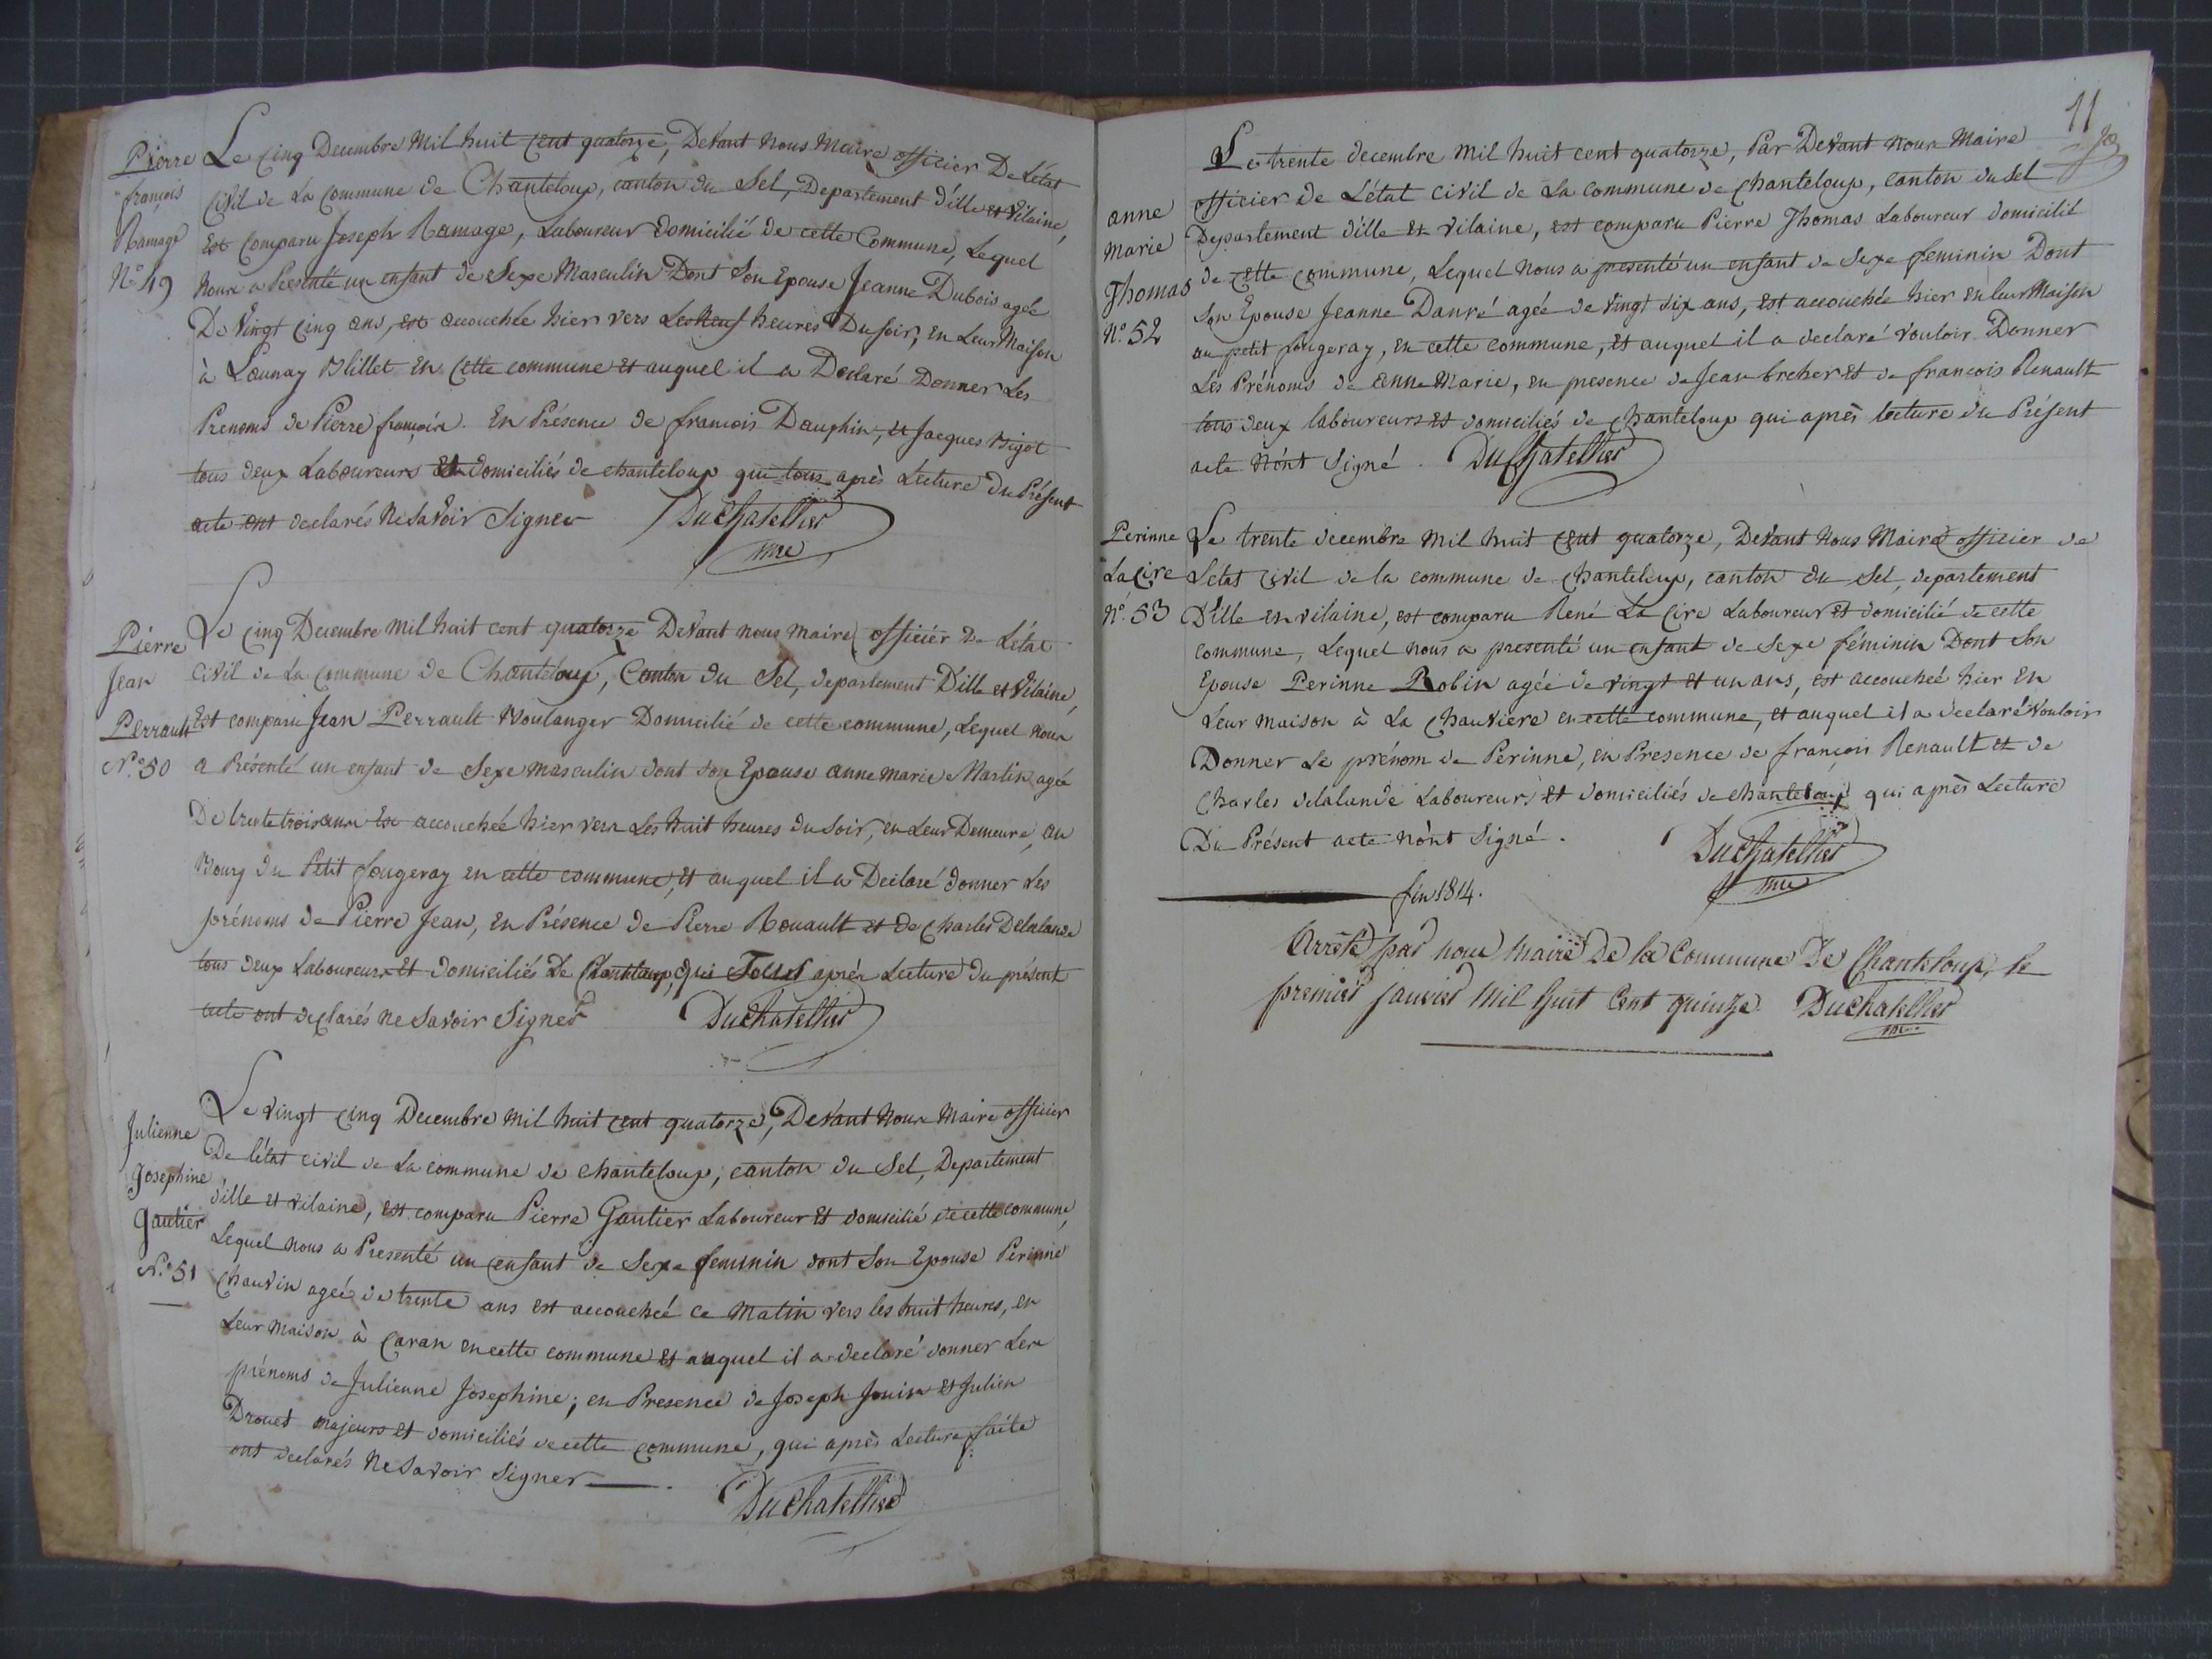 Pierre
françois
Ramage
N.° 49
Le Cinq Decembre Mil huit Cent quatorze, Devant Nous Maire officier De L'état
Civil de La Commune de Chanteloup, canton du Sel, Departement d'ille et Vilaine,
Est Comparu Joseph Ramage, Laboureur domicilié de cette Commune, Lequel
Nous a Présenté un enfant de Sexe Masculin Dont Son Epouse Jeanne Dubois agée
De Vingt Cinq ans, est accouchée hier vers Les Neuf heures Du Soir, en Leur Maison
à Launay Blillet en Cette commune et auquel il a Declaré Donner Les
Prenoms de Pierre françois. En Présence de francois Dauphin, et Jacques Bigot
tous deux Laboureurs et domiciliés de chanteloup qui tous après Lecture Du Présent
acte ont declarés Ne Savoir Signer Duchatellier
me
Pierre
Jean
Perrault
N.° 50
Le Cinq Decembre Mil huit cent quatorze Devant nous Maire officier De L'état
Civil de La Commune de Chanteloup, Canton du Sel, departement D'ille et Vilaine,
Est comparu Jean Perrault Boulanger Domicilié de cette commune, Lequel nous
a Présenté un enfant de Sexe masculin dont son Epouse anne marie Martin agée
De trente trois ans est accouchée hier vers Les huit heures du Soir, en Leur Demeure, au
Bourg du Petit fougeray en cette commune, et auquel il a Declaré donner Les
prénoms de Pierre Jean, en Présence de Pierre Rouault et de Charles Delalande
tous deux Laboureurs et domiciliés De Chanteloup, qui Tous après Lecture du présent
acte ont declarés ne Savoir Signer Duchatellier
Julienne
Josephine
Gautier
N.° 51
Le vingt Cinq Decembre mil huit cent quatorze, Devant Nous Maire officier
De l'état civil de La commune de chanteloup, canton du Sel, Departement
d'ille et vilaine, est comparu Pierre Gautier Laboureur et domicilié de cette commune,
Lequel nous a Presenté un enfant de Sexe feminin dont Son Epouse Perinne
Chauvin agée de trente ans est accouchée ce matin vers les huit heures, en
Leur maison à Caran en cette commune et auquel il a declaré donner Les
prénoms de Julienne Josephine; en Presence de Joseph Jouin et Julien
Drouet majeurs et domiciliés de cette commune, qui après Lecture faite
ont declarés Ne Savoir Signer. Duchatellier
11
anne
marie
Thomas
N.° 52
Le trente decembre mil huit cent quatorze, Par Devant nous Maire
officier de L'état civil de La commune de chanteloup, canton du Sel
Departement d'ille et vilaine, est comparu Pierre Thomas Laboureur domicilié
de cette commune, Lequel nous a presenté un enfant de Sexe feminin Dont
Son Epouse Jeanne Danré agée de vingt six ans, est accouchée hier en leur Maison
au petit fougeray, en cette commune, et auquel il a declaré vouloir Donner
Les Prénoms de anne Marie, en presence de Jean brcher et de francois Renault
tous deux laboureurs et domiciliés de chanteloup qui après lecture du Présent
acte N'ont Signé. Duchatellier
Perinne
La Cire
N.° 53
Le trente decembre mil huit cent quatorze, Devant Nous Maire officier de
L'etat Civil de la commune de chanteloup, canton du Sel, departement
D'ille et vilaine, est comparu René La Cire Laboureur et domicilié de cette
commune, Lequel nous a presenté un enfant de Sexe féminin Dont Son
Epouse Perinne Robin agée de vingt et un ans, est accouchée hier en
Leur maison à La Chauviere en cette commune, et auquel il a declaré Vouloir
Donner Le prénom de Perinne, en Presence de françois Renault et de
Charles delalande Laboureurs et domiciliés de chanteloup qui après Lecture
Du Présent acte N'ont Signé. Duchatellier
me
fin 1814.
Arrêté par nous Maire De la Commune De Chanteloup, le
premier janvier Mil huit Cent quinze. Duchatellier
me